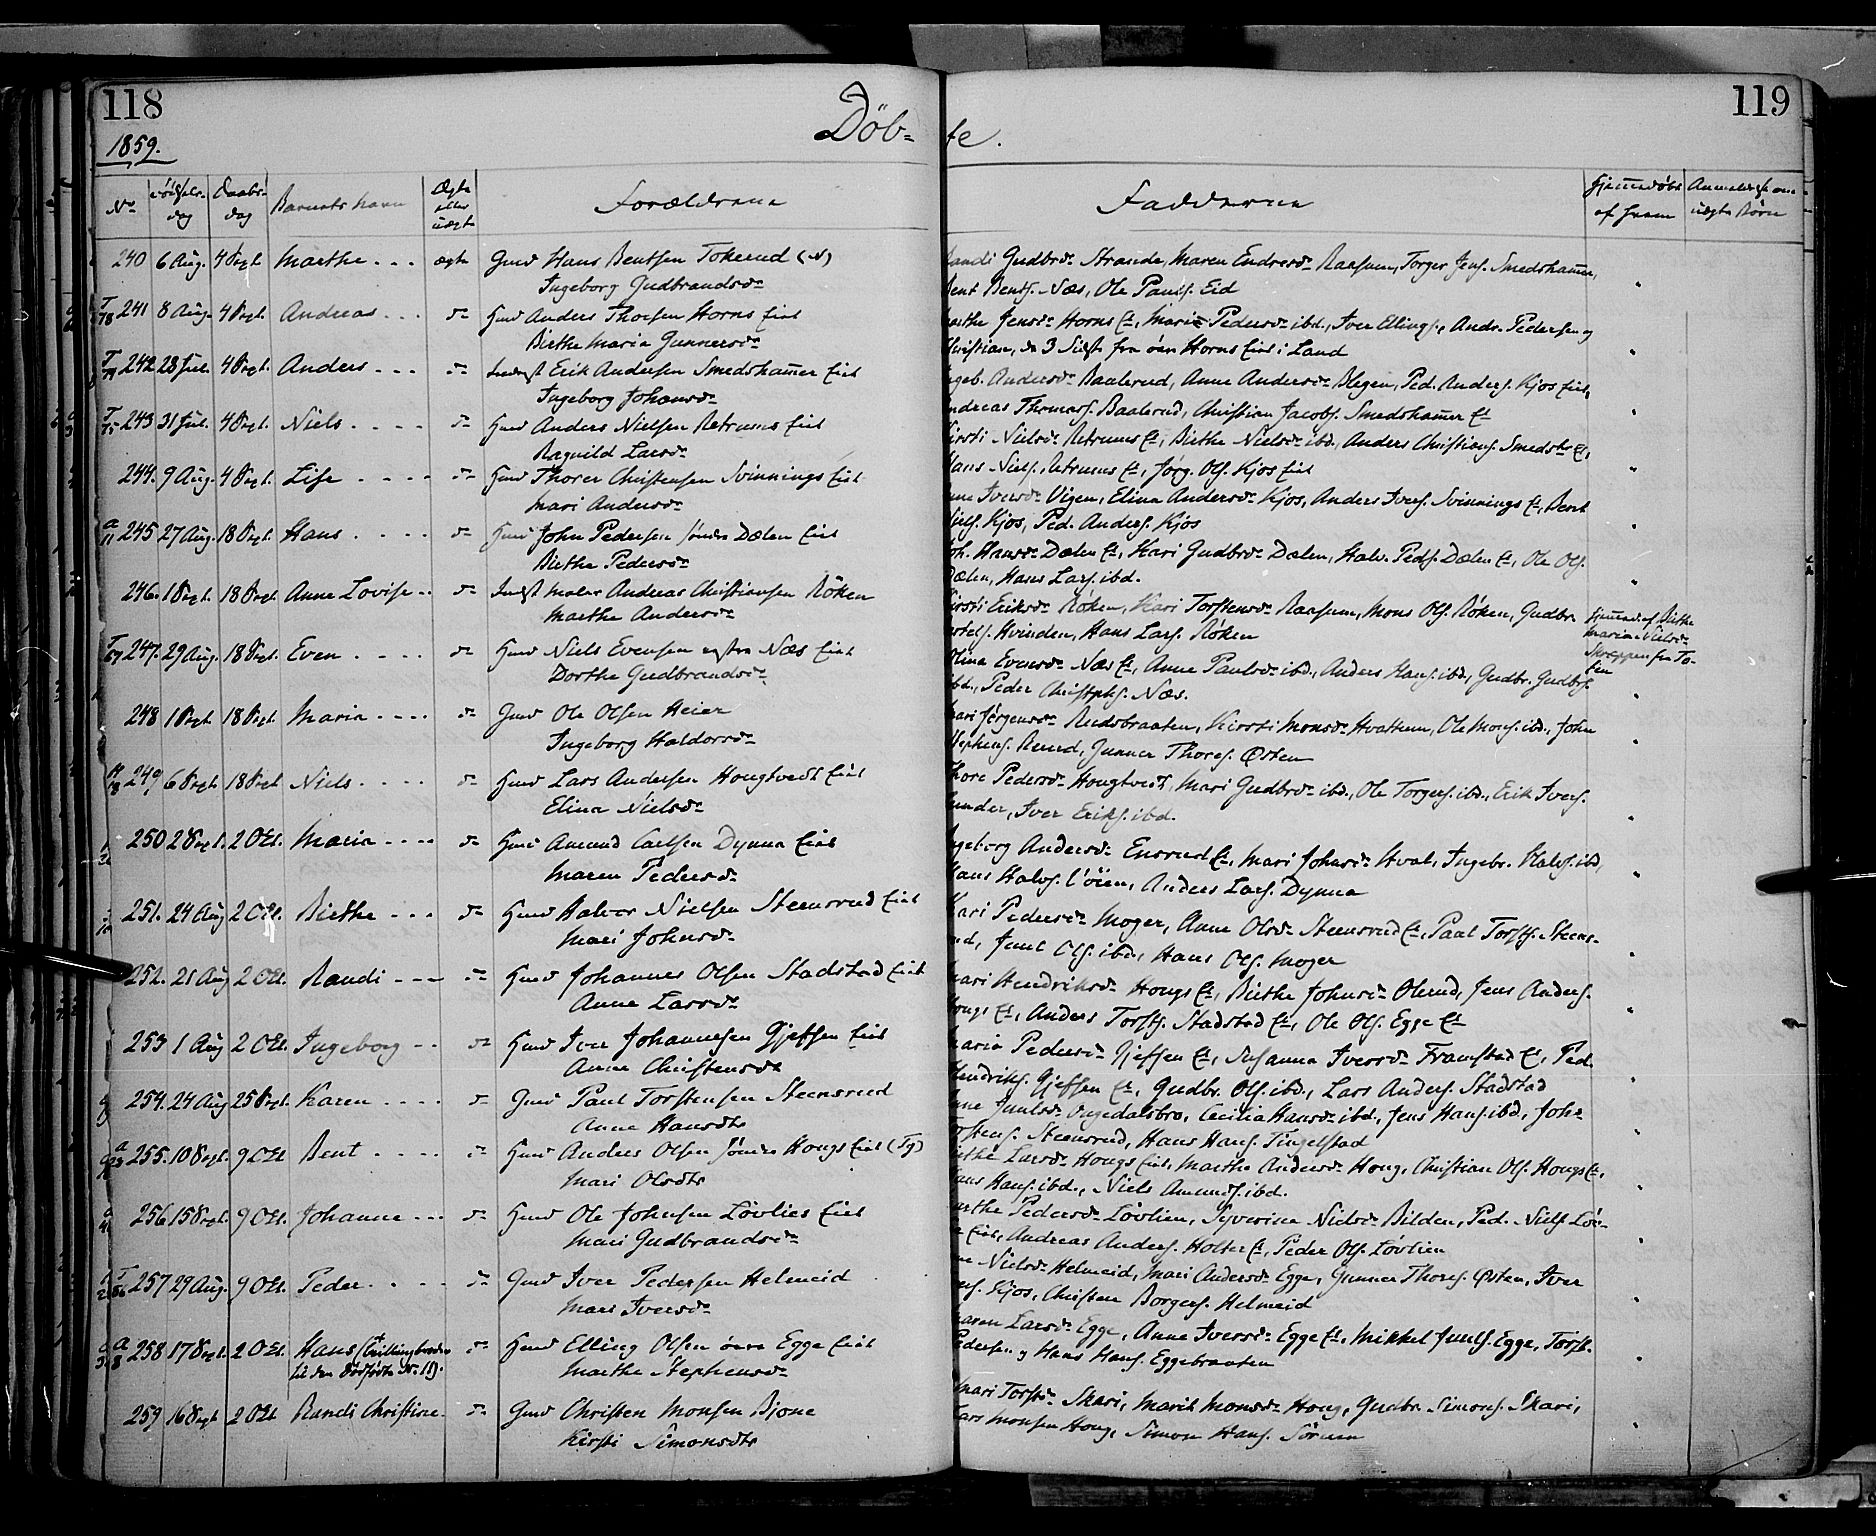 118
1859.
Döb-
te.
119
No
Födsels-dag
Daabs-dag
Barnets Navn
Ægte eller uægte
Forældrene
Fadderne
Hjemmedöbt af hvem
Anmærkn. om uægte Börn
240 6 Aug. 4 Sept. Marthe ægte Gmd Hans Bentsen Tokerud (N)
Ingeborg Gudbrandsd.
Gudbrd. Strande, Maren Endresd. Raasum, Torger Jens. Smedshamer,
Bent Bents. Næs, Ole Pauls. Eid
241 8 Aug. 4 Sept. Andreas do Hmd Anders Thoresen Horns Eiet
Birthe Maria Gunnersd.
Marthe Jensd. Horns Et, Marie Pedersd. ibd., Iver Ellings., Andr. Pedersen og
Christian, de 3 Sidste fra övre Horns Eiet i Land
242 28 Jul. 4 Sept. Anders do Inderst Erik Andersen Smedshamer Eiet
Ingeborg Johansd.
Ingeb. Andersd. Baalerud, Anne Andersd. Blegen, Ped. Anders. Kjos Eiet,
Andreas Thomass. Baalerud, Christian Jacobs. Smedshamer Et
243 31 Jul. 4 Sept. Niels do Hmd Anders Nielsen Retrums Eiet
Ragnild Larsd.
Kirsti Nielsd. Retrums Et, Birthe Nielsd. ibd., Anders Christians. Smedsh. Et,
Hans Niels. Retrums Et, Jörg. Ols. Kjos Eiet
244. 9 Aug. 4 Sept. Lise do Hmd Thorer Christensen Svinnings Eiet
Mari Andersd.
Iversd. Vigen, Elina Andersd. Kjos, Anders Ivers. Svinnings Et, Bent
Niels. Kjos, Ped. Anders. Kjos
245 27 Aug. 18 Sept. Hans do Hmd John Pedersen söndre Dælen Eiet
Birthe Pedersd.
Joh. Hansd. Dælen Et, Kari Gudbrd. Dælen, Halv. Peds. Dælen Et, Ole Ols.
Dælen, Hans Lars. ibd.
246. 1 Sept. 18 Sept. Anne Lovise do Inderst Maler Andreas Christiansen Röken
Marthe Andersd.
Kirsti Eriksd. Röken, Kari Torstensd. Raasum, Mons Ols. Röken, Gudbr.
Hvinden, Hans Lars. Röken
Hjemmed. af Birthe
Maria Nielsd.
fra To-
ten
247. 29 Aug. 18 Sept. Even do Hmd Niels Evensen Næs Eiet
Dorthe Gudbrandsd.
Olina Evensd. Næs Et, Anne Paulsd. ibd., Anders Hans. ibd., Gudbr. Gudbrs.
ibd., Peder Christophs. Næs.
248 1 Sept. 18 Sept. Maria do Gmd Ole Olsen Heier
Ingeborg Haldorsd.
Mari Jörgensd. Rudsbraaten, Kirsti Monsd. Hvattum, Ole Mons. ibd., John
Stephens. Rerud, Gunner Thores. Östen
249 6 Sept. 18 Sept. Niels do Hmd Lars Andersen Hougtvedt Eiet
Elina Nielsd.
Thore Pedersd. Hougtvedt, Mari Gudbrd. ibd., Ole Torgers. ibd., Erik Ivers.
Iver Eriks. ibd.
250 2 Sept. 2 Oct. Maria do Hmd Amund Carlsen Dynna Eiet
Maren Pedersd.
Ingeborg Andersd. Ensrud Et, Mari Johnsd. Hval, Ingebr. Halvs. ibd,
Hans Halvs. Andens Lars. Dynna
251. 24 Aug 2 Oct. Birthe do Hmd Halvor Nielsen Steensrud Eiet
Mari Johnsd.
Kari Pedersd. Moger, Anne Olsd. Steensrud Et, Paal Torsts. Steens-
rud, Juul Ols. ibd., Hans Ols. Moger
252. 21 Aug 2 Oct. Randi do Hmd Johannes Olsen Stadstad Eiet
Anne Larsd.
Mari Hendriksd. Hougs Et, Birthe Johnsd. Olerud, Jens Anders.
Hougs Et, Anders Torsts. Stadstad Et, Ole Ols. Egge Et
253 1 Aug 2 Oct. Ingeborg do Hmd Iver Johannesen Gjefsen Eiet
Anne Christensd.
Maria Pedersd. Gjefsen Et, Susanna Iversd. Framstad Et, Ped.
Hendriks. Gjefsen Et, Gudbr. Ols. ibd., Lars Anders. Stadstad
254. 24 Aug 25 Sept. Karen do Gmd Paul Torstensen Steensrud
Anne Hansdtr
Anne Juulsd. Cecilia Hansd. ibd., Jens Hans. ibd., Joh-
Torstens. Steensrud, Hans Hans. Tingelstad
255. 10 Sept. 9 Oct Bent do Hmd Anders Olsen söndre Hougs Eiet (Tg)
Mari Olsdtr
Birthe Larsd. Hougs Eiet, Marthe Andersd. Houg, Christian Ols. Hougs Et,
Hans Hans. ibd., Niels Amunds. ibd.
256 15 Sept. 9 Oct. Johanne do Hmd Ole Johnsen Lövlies Eiet
Mari Gudbrandsd.
Marthe Pedersd. Lövlien, Syverine Nielsd. Bilden, Ped. Niels. Löv-
Eiet, Andreas Anders. Holter Et, Peder Ols. Lövlien
257 29 Aug. 9 Oct. Peder do Gmd Iver Pedersen Helmeid
Mari Iversd.
Nielsd. Helmeid, Mari Andersd. Egge, Gunner Thores. Östen, Iver
Kjos, Christen Borgers. Helmeid
258 17 Sept. 2 Oct. Hans (Tvillingbroder
til den Dödfödte No 11). do Hmd Elling Olsen övre Egge Eiet
Marthe Stephensd.
Maren Larsd. Egge, Anne Iversd. Egge Et, Mikkel Juuls. Egge, Torst.
Pedersen og Hans Hans. Eggebraaten
259 16 Sept 2 Oct Randi Christine do Gmd Christen Monsen Bjone
Kirsti Simonsdtr
Mari Torstd. Skari, Marit Monsd. Houg, Gudbr. Simons. Skari,
Lars Monsen Houg, Simon Hans. Sörum